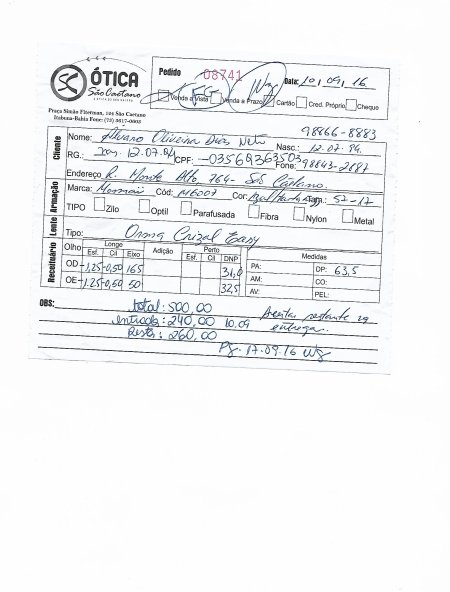 ÓTICA
São Caetano
Praça Simão Fiterman, 104 São Caetano
Itabuna-Bahia Fone: (73) 3617-0603
Pedido 08741 Data: 10/09/16
Venda à Vista Venda a Prazo Cartão Cred. Próprio Cheque
98866-8883
Cliente
Nome: Alvaro Oliveira Dias Neto Nasc.: 12.07.94
RG.: 12.07.94 CPF: -03569363503 Fone: 98843-2887
Endereço R. Monte Alto, 764- São Caetano
Armação
Marca: Cód: M6007 Cor: Tam.: 52-17
TIPO Zilo Optil Parafusada Fibra Nylon Metal
Lente
Tipo: Orma Crizal Easy
Receituário
Olho Longe Adição Perto DNP Medidas
Esf. Cil Eixo Esf. Cil
OD -1,25 -0,50 165 31,0 PA: DP: 63,5
AM: CO:
OE -1,25 -0,50 50 32,5 AV: PEL:
OBS: total: 500,00
entrada: 240,00 10.09 restante na
entrega.
Resta: 260,00
Pg. 17.09.16